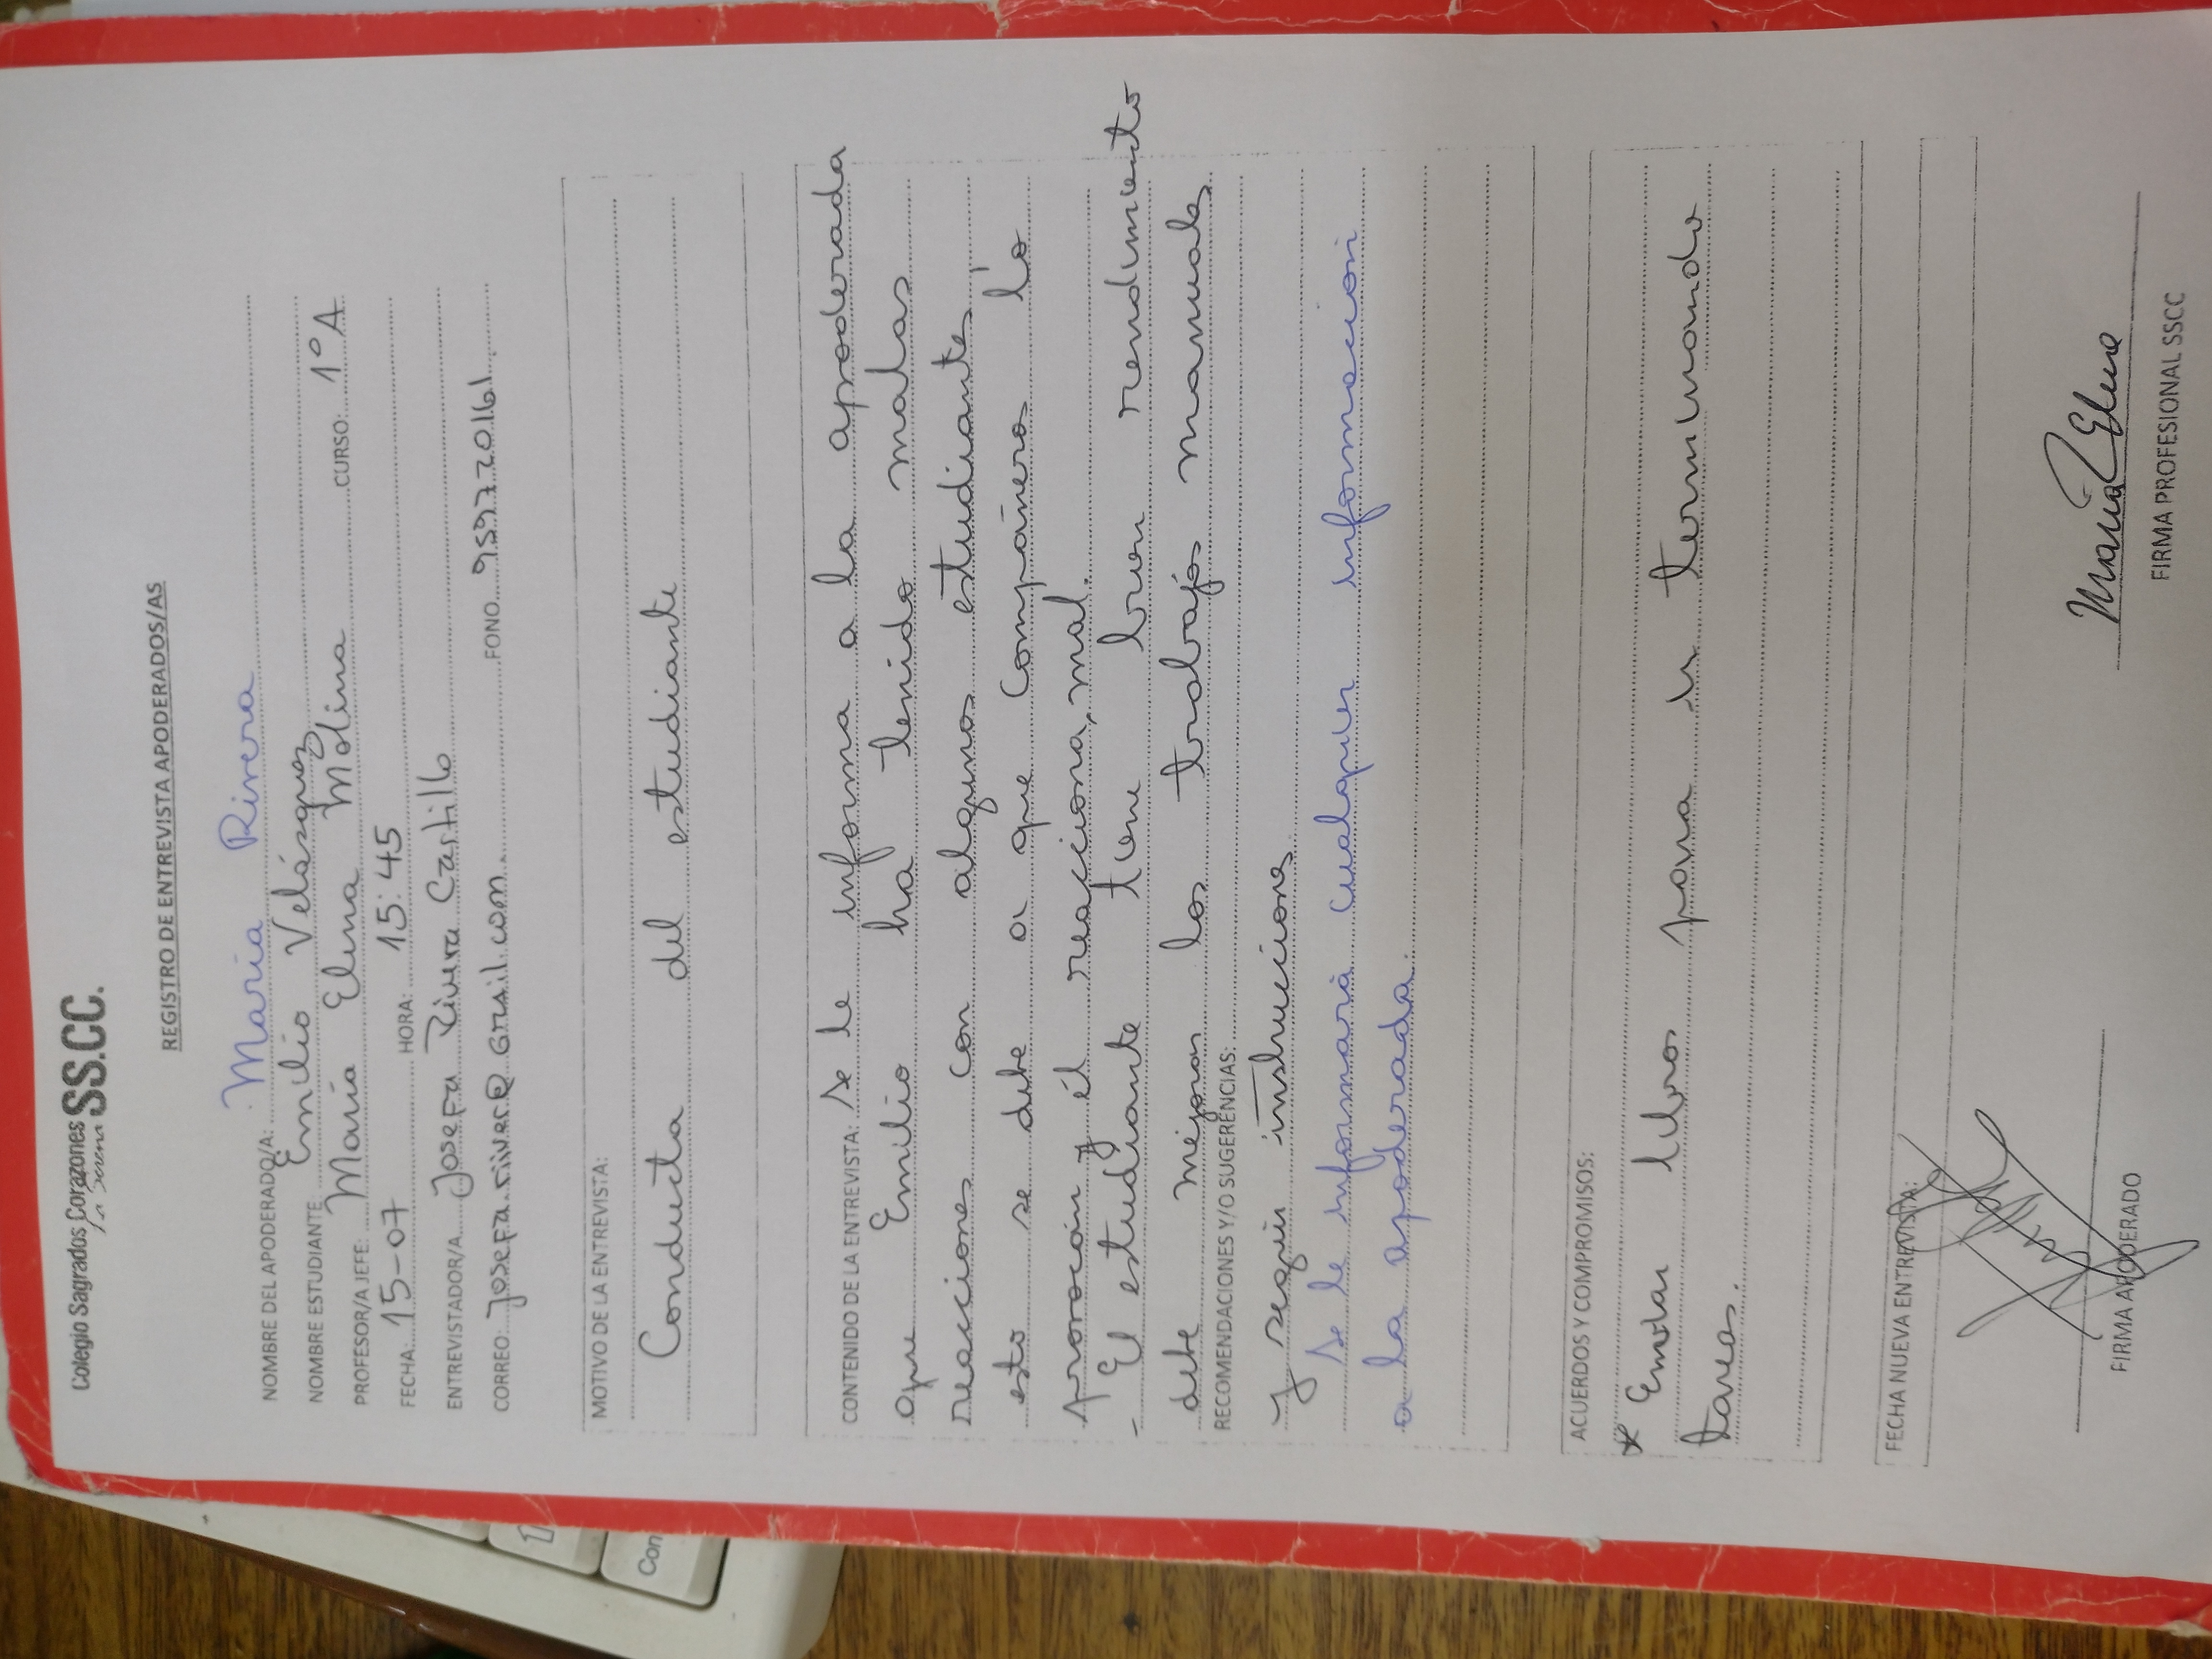 Colegio Sagrados Corazones SS.CC.
La Serena
REGISTRO DE ENTREVISTA APODERADOS/AS
NOMBRE DEL APODERADO/A: María Rivera
NOMBRE ESTUDIANTE: Emilio Velásquez
PROFESOR/A JEFE: María Elena Molina CURSO: 1º A
FECHA: 15-07 HORA: 15:45
ENTREVISTADOR/A Josefa Rivera Castillo
CORREO: FONO 959720161
MOTIVO DE LA ENTREVISTA:
Conducta del estudiante
CONTENIDO DE LA ENTREVISTA: Se le informa a la apoderada
que Emilio ha tenido malas
reacciones con algunos estudiantes,
esto se debe a que compañeros lo
provocan y él reacciona, mal.
- El estudiante tiene buen rendimiento
debe mejorar los trabajos manuales
RECOMENDACIONES Y/O SUGERENCIAS:
y seguir instrucciones
Se le informará cualquier información
a la apoderada.
ACUERDOS Y COMPROMISOS:
* Enviar libros para ir terminando
tareas.
FECHA NUEVA ENTREVISTA:
María Elena
FIRMA APODERADO FIRMA PROFESIONAL SSCC
Con